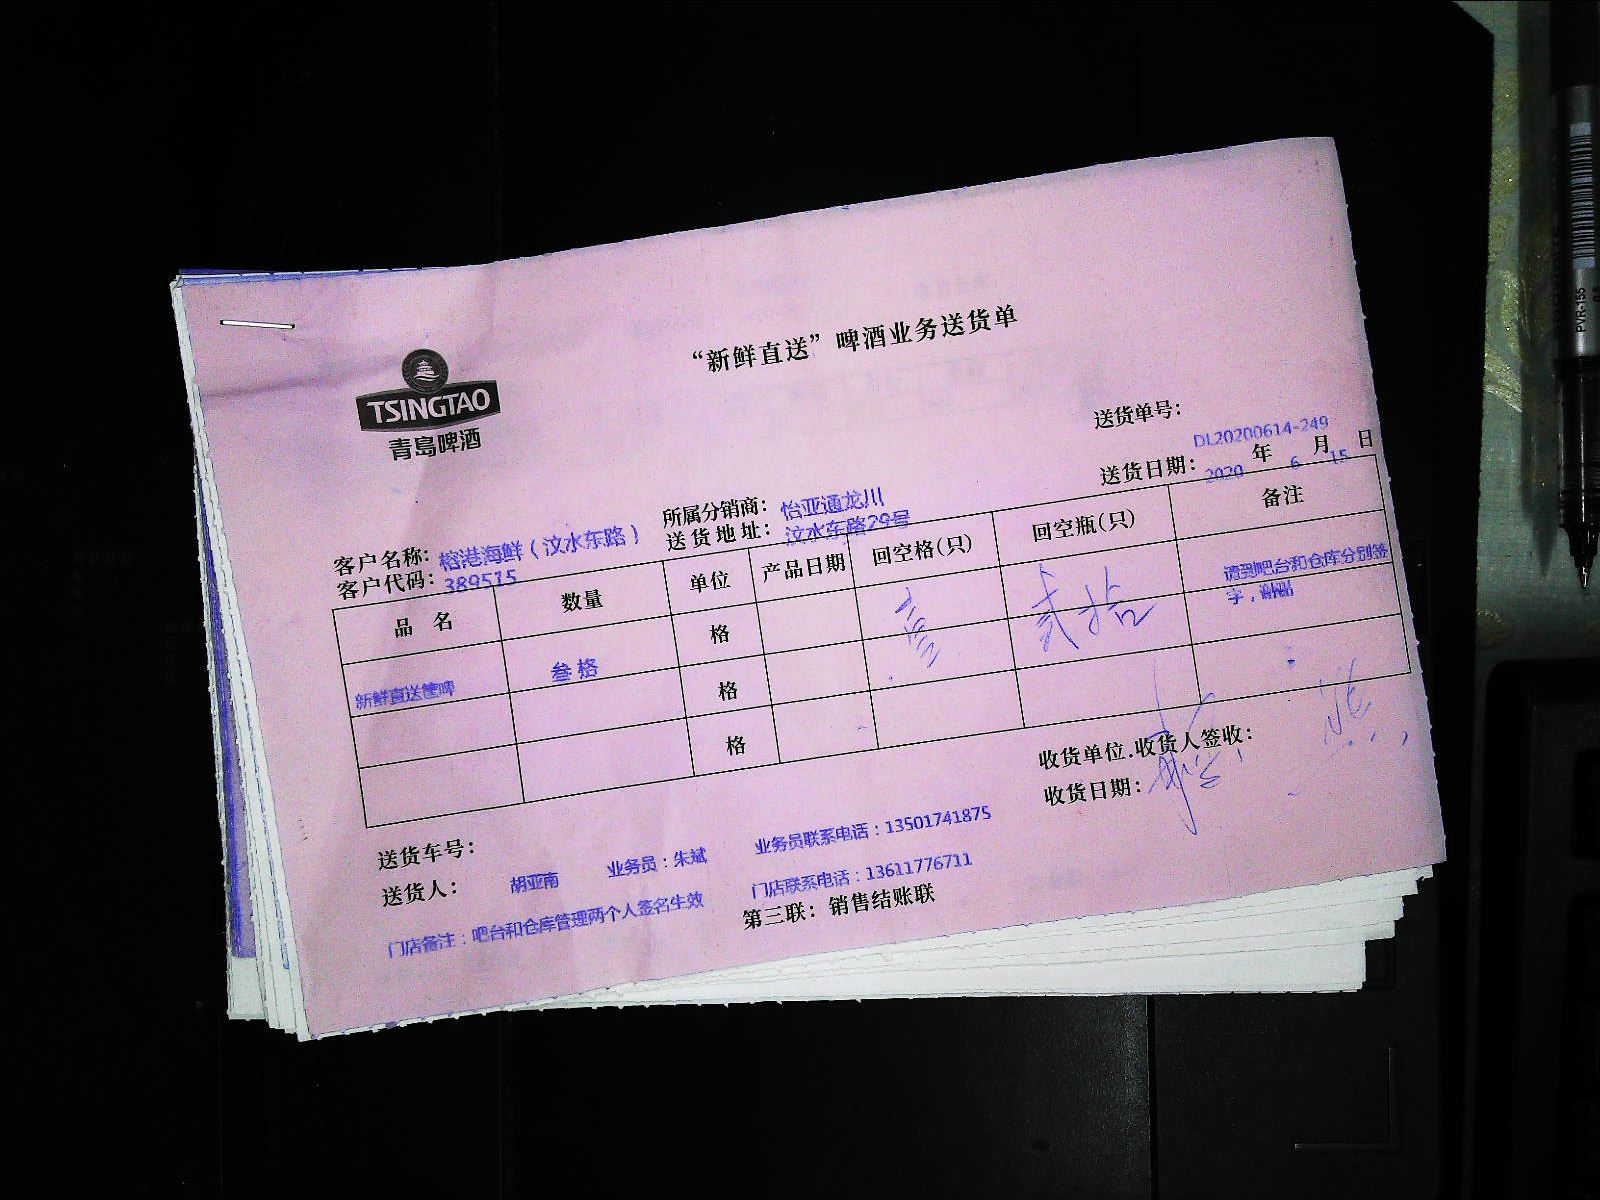 “新鲜直送”啤酒业务送货单
TSINGTAO
青岛啤酒
送货单号：
DL20200614-249
送货日期：2020 年 6 月 15 日
所属分销商：怡亚通龙川
客户名称：榕港海鲜（汶水东路） 送货地址：汶水东路29号
客户代码：389515
品 名 数量 单位 产品日期 回空格(只) 回空瓶(只) 备注
新鲜直送筐啤 叁格 格 壹 贰拾 请到吧台和仓库分别签
字，谢谢
格
格
收货单位.收货人签收：
收货日期：
送货车号：
送货人： 胡亚南 业务员：朱斌 业务员联系电话：13501741875
门店联系电话：13611776711
门店备注：吧台和仓库管理两个人签名生效
第三联：销售结账联
PVR-155